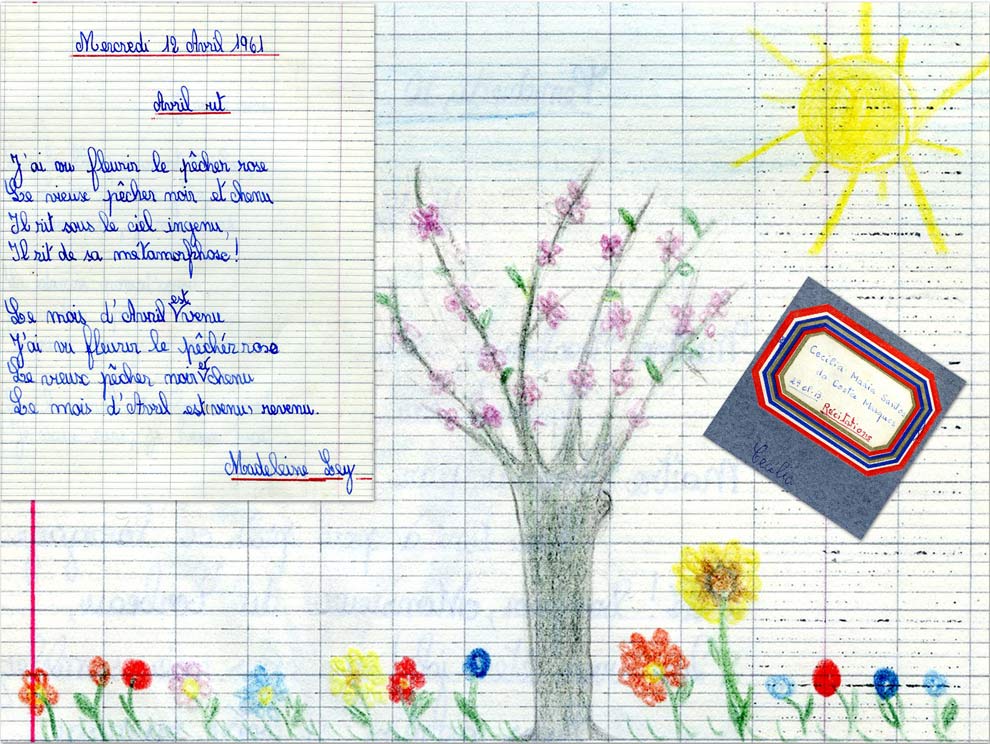 Mercredi 12 Avril 1961
Avril rit
J'ai vu fleurir le pêcher rose
Le vieux pêcher noir et chenu
Il rit sous le ciel ingenu,
Il rit de sa métamorphose!
Le mois d'Avril est venu
J'ai vu fleurir le pêcher rose
Le vieux pêcher noir et chenu
Le mois d'Avril est revenu.
Madeleine Ley
Cecilia Maria Santos
da Costa Marques
Récitations
Cecilia